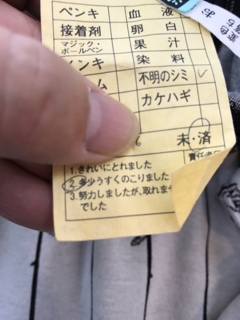 ペンキ 血液
接着剤 卵白
マジック・ボールペン 果汁
ンキ 染料
ム 不明のシミ ✓
カケハギ
未・済
1. きれいにとれました
2. 多少うすくのこりました
3. 努力しましたが、取れませ
でした